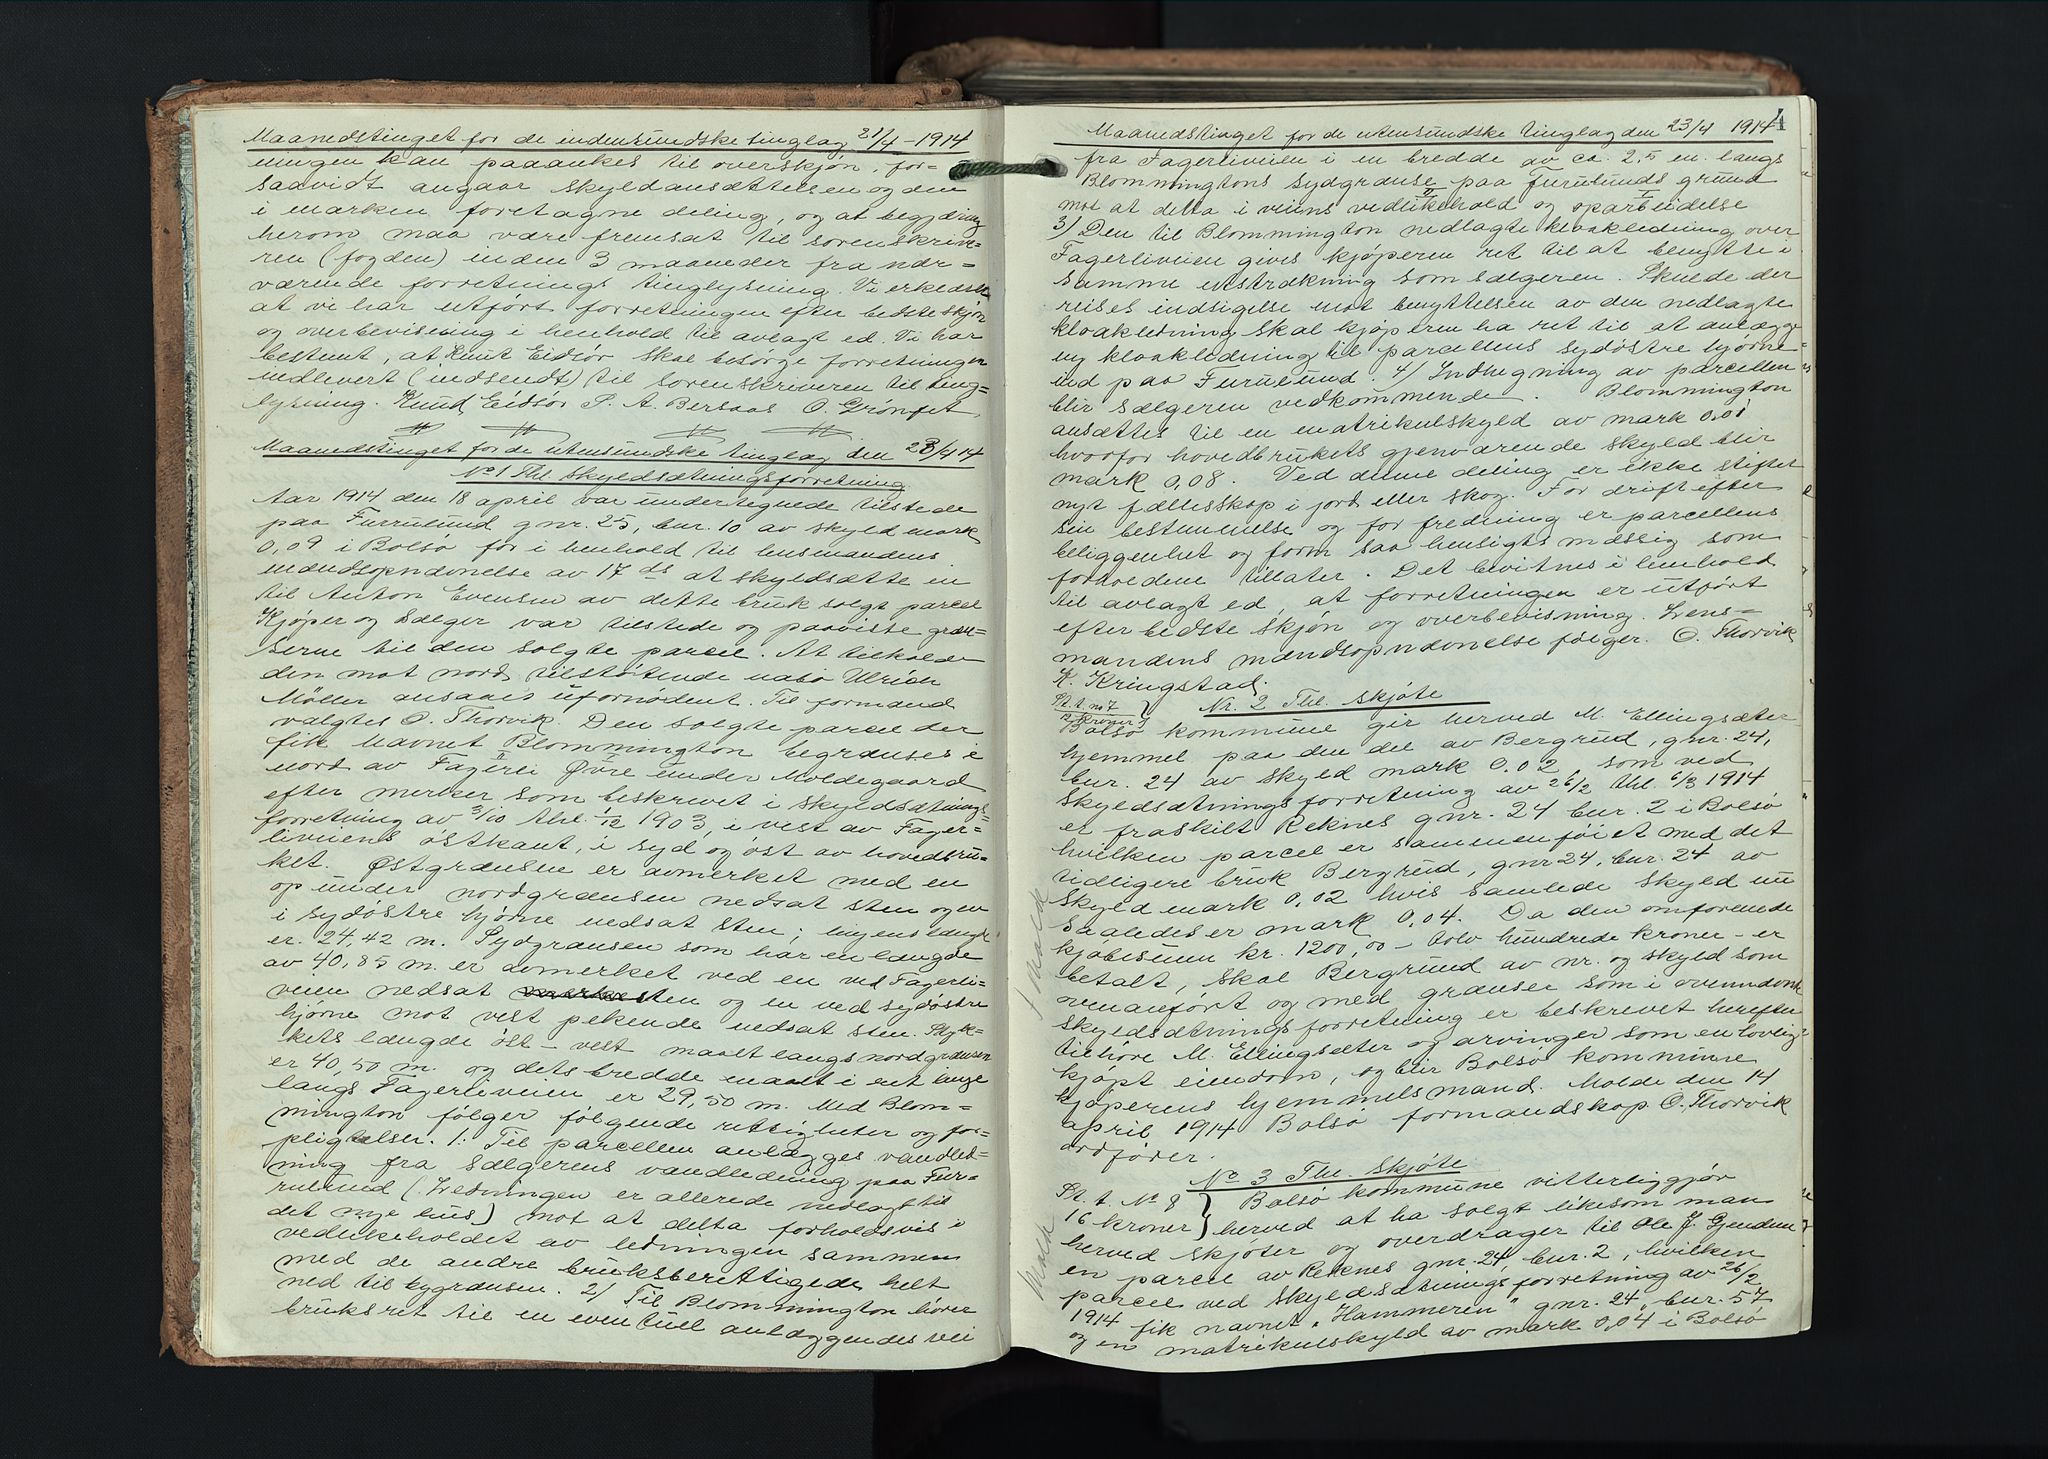 Maanedstinget for de indensundske tinglag 21/4 - 1914
ningen kan paaankes til overskjøn, for-
saavidt angaar skyldansættelsen og den
i marken foretagne deling, og at begjæring
herom maa være fremsat til sorenskrive-
ren (fogden) inden 3 maaneder fra nær-
værende forretnings tinglysning. Vi erklærer
at vi har utført forretningen efter bedste skjøn
og overbevisning i henhold til avlagt ed. Vi har
bestemt, at Knut Eidsør skal besørge forretningen
indlevert (indsendt) til sorenskriveren til ting-
lysning. Knud Eidsør P. A. Bersaas O. Grønset
Maanedstinget for de utensundske tinglag den 23/4 14
No 1 Thl. Skyldsætningsforretning
Aar 1914 den 18 april var undertegnede tilstede
paa Furrulund gnr. 25, bnr. 10 av skyld mark
0,09 i Bolsø for i henhold til lensmandens
mændsopnævnelse av 17 ds at skyldsætte en
til Anton Evensen av dette bruk solgt parcel
Kjøper og sælger var tilstede og paaviste græn-
serne til den solgte parcel. At tilkalde
den mot nord tilstøtende nabo Ulrich
Møller ansaaes ufornødent. Til formand
valgtes O. Thorvik. Den solgte parcel der
fik navnet Blommington begrænses i
nord av Fagerli Øvre under Moldegaard
efter merker som beskrevet i skyldsætnings-
forretning av 3/10 thl. 1/12 1903, i vest av Fager-
liveiens østkant, i syd og øst av hovedbru-
ket. Østgrænsen er avmerket med en
op under nordgrænsen nedsat sten og en
i sydøstre hjørne nedsat sten; linjens længde
er 24,42 m. Sydgrænsen som har en længde
av 40,85 m. er avmerket ved en ved Fagerli-
veien nedsat sten og en ved sydøstre
hjørne mot vest pekende nedsat sten. Styk-
kets længde øst - vest maalt langs nordgrænsen
er 40,50 m. og dets bredde maalt i ret linje
langs Fagerliveien er 29,50 m. Med Blom-
mington følger følgende rettigheter og for-
pligtelser. 1. Til parcellen anlægges vandled-
ning fra sælgerens vandledning paa Fur-
rulund (Ledningen er allerede nedlagt til
det nye hus) mot at delta forholdsvis i
vedlikeholdet av ledningen sammen
med de andre bruksberettigede helt
ned til bygrænsen. 2) Til Blommington hører
bruksret til en eventuell anlæggendes vei
4
Maanedstinget for de utensundske tinglag den 23/4 1914
fra Fagerliveien i en bredde av ca. 2,5 m. langs
Blommingtons sydgrænse paa Furulunds grund
mot at delta i veiens vedlikehold og oparbeidelse
3) Den til Blommington nedlagte kloakledning over
Fagerliveien gives kjøperen ret til at benytte i
samme utstrækning som sælgeren. Skulde der
reises indsigelse mot benyttelsen av den nedlagte
kloakledning skal kjøperen ha ret til at anlægge
ny kloakledning til parcellens sydøstre hjørne
ind paa Furulund. 4) Indhegning av parcellen
blir sælgeren vedkommende. Blommington
ansættes til en matrikulskyld av mark 0,01
hvorfor hovedbrukets gjenværende skyld blir
mark 0,08. Ved denne deling er ikke stiftet
nyt fællesskap i jord eller skog. For drift efter
sin bestemmelse og for fredning er parcellens
beliggenhet og form saa hensigtsmæssig som
forholdene tillater. Det bevitnes i henhold
til avlagt ed, at forretningen er utført
efter bedste skjøn og overbevisning. Lens-
mandens mændsopnævnelse følger. O. Thorvik
K. Kringstad.
St. t. no 7
2 kroner
Nr. 2 Thl. Skjøte
Bolsø kommune gir herved M. Ellingsæter
hjemmel paa den del av Bergrud, gnr. 24,
bnr. 24 av skyld mark 0.02, som ved
skyldsætningsforretning av 26/2 thl. 6/3 1914
er fraskilt Reknes gnr. 24 bnr. 2 i Bolsø
hvilken parcel er sammenføiet med det
tidligere bruk Bergrud, gnr 24, bnr. 24 av
skyld mark 0,02 hvis samlede skyld nu
saaledes er mark 0,04. Da den omforenede
kjøbesum kr. 1200,00 - tolv hundrede kroner - er
betalt, skal Bergrund av nr. og skyld som
ovenanført og med grænser som i ovennævnte
skyldsætningsforretning er beskrevet herefter
tilhøre M. Ellingsæter og arvinger som en lovlig
kjøpt eiendom, og blir Bolsø kommune
kjøperens hjemmelsmand. Molde den 14
april 1914 Bolsø formandskap. O. Thorvik
ordfører.
No 3 Thl. Skjøte
St. t. No 8
16 kroner
Bolsø kommune vitterliggjør
herved at ha solgt likesom man
herved skjøter og overdrager til Ole J. Gjendem
en parcel av Reknes gnr. 24, bnr. 2, hvilken
parcel ved skyldsætningsforretning av 26/2
1914 fik navnet "Hammeren" gnr. 24, bnr. 57
og en matrikulskyld av mark 0,04 i Bolsø